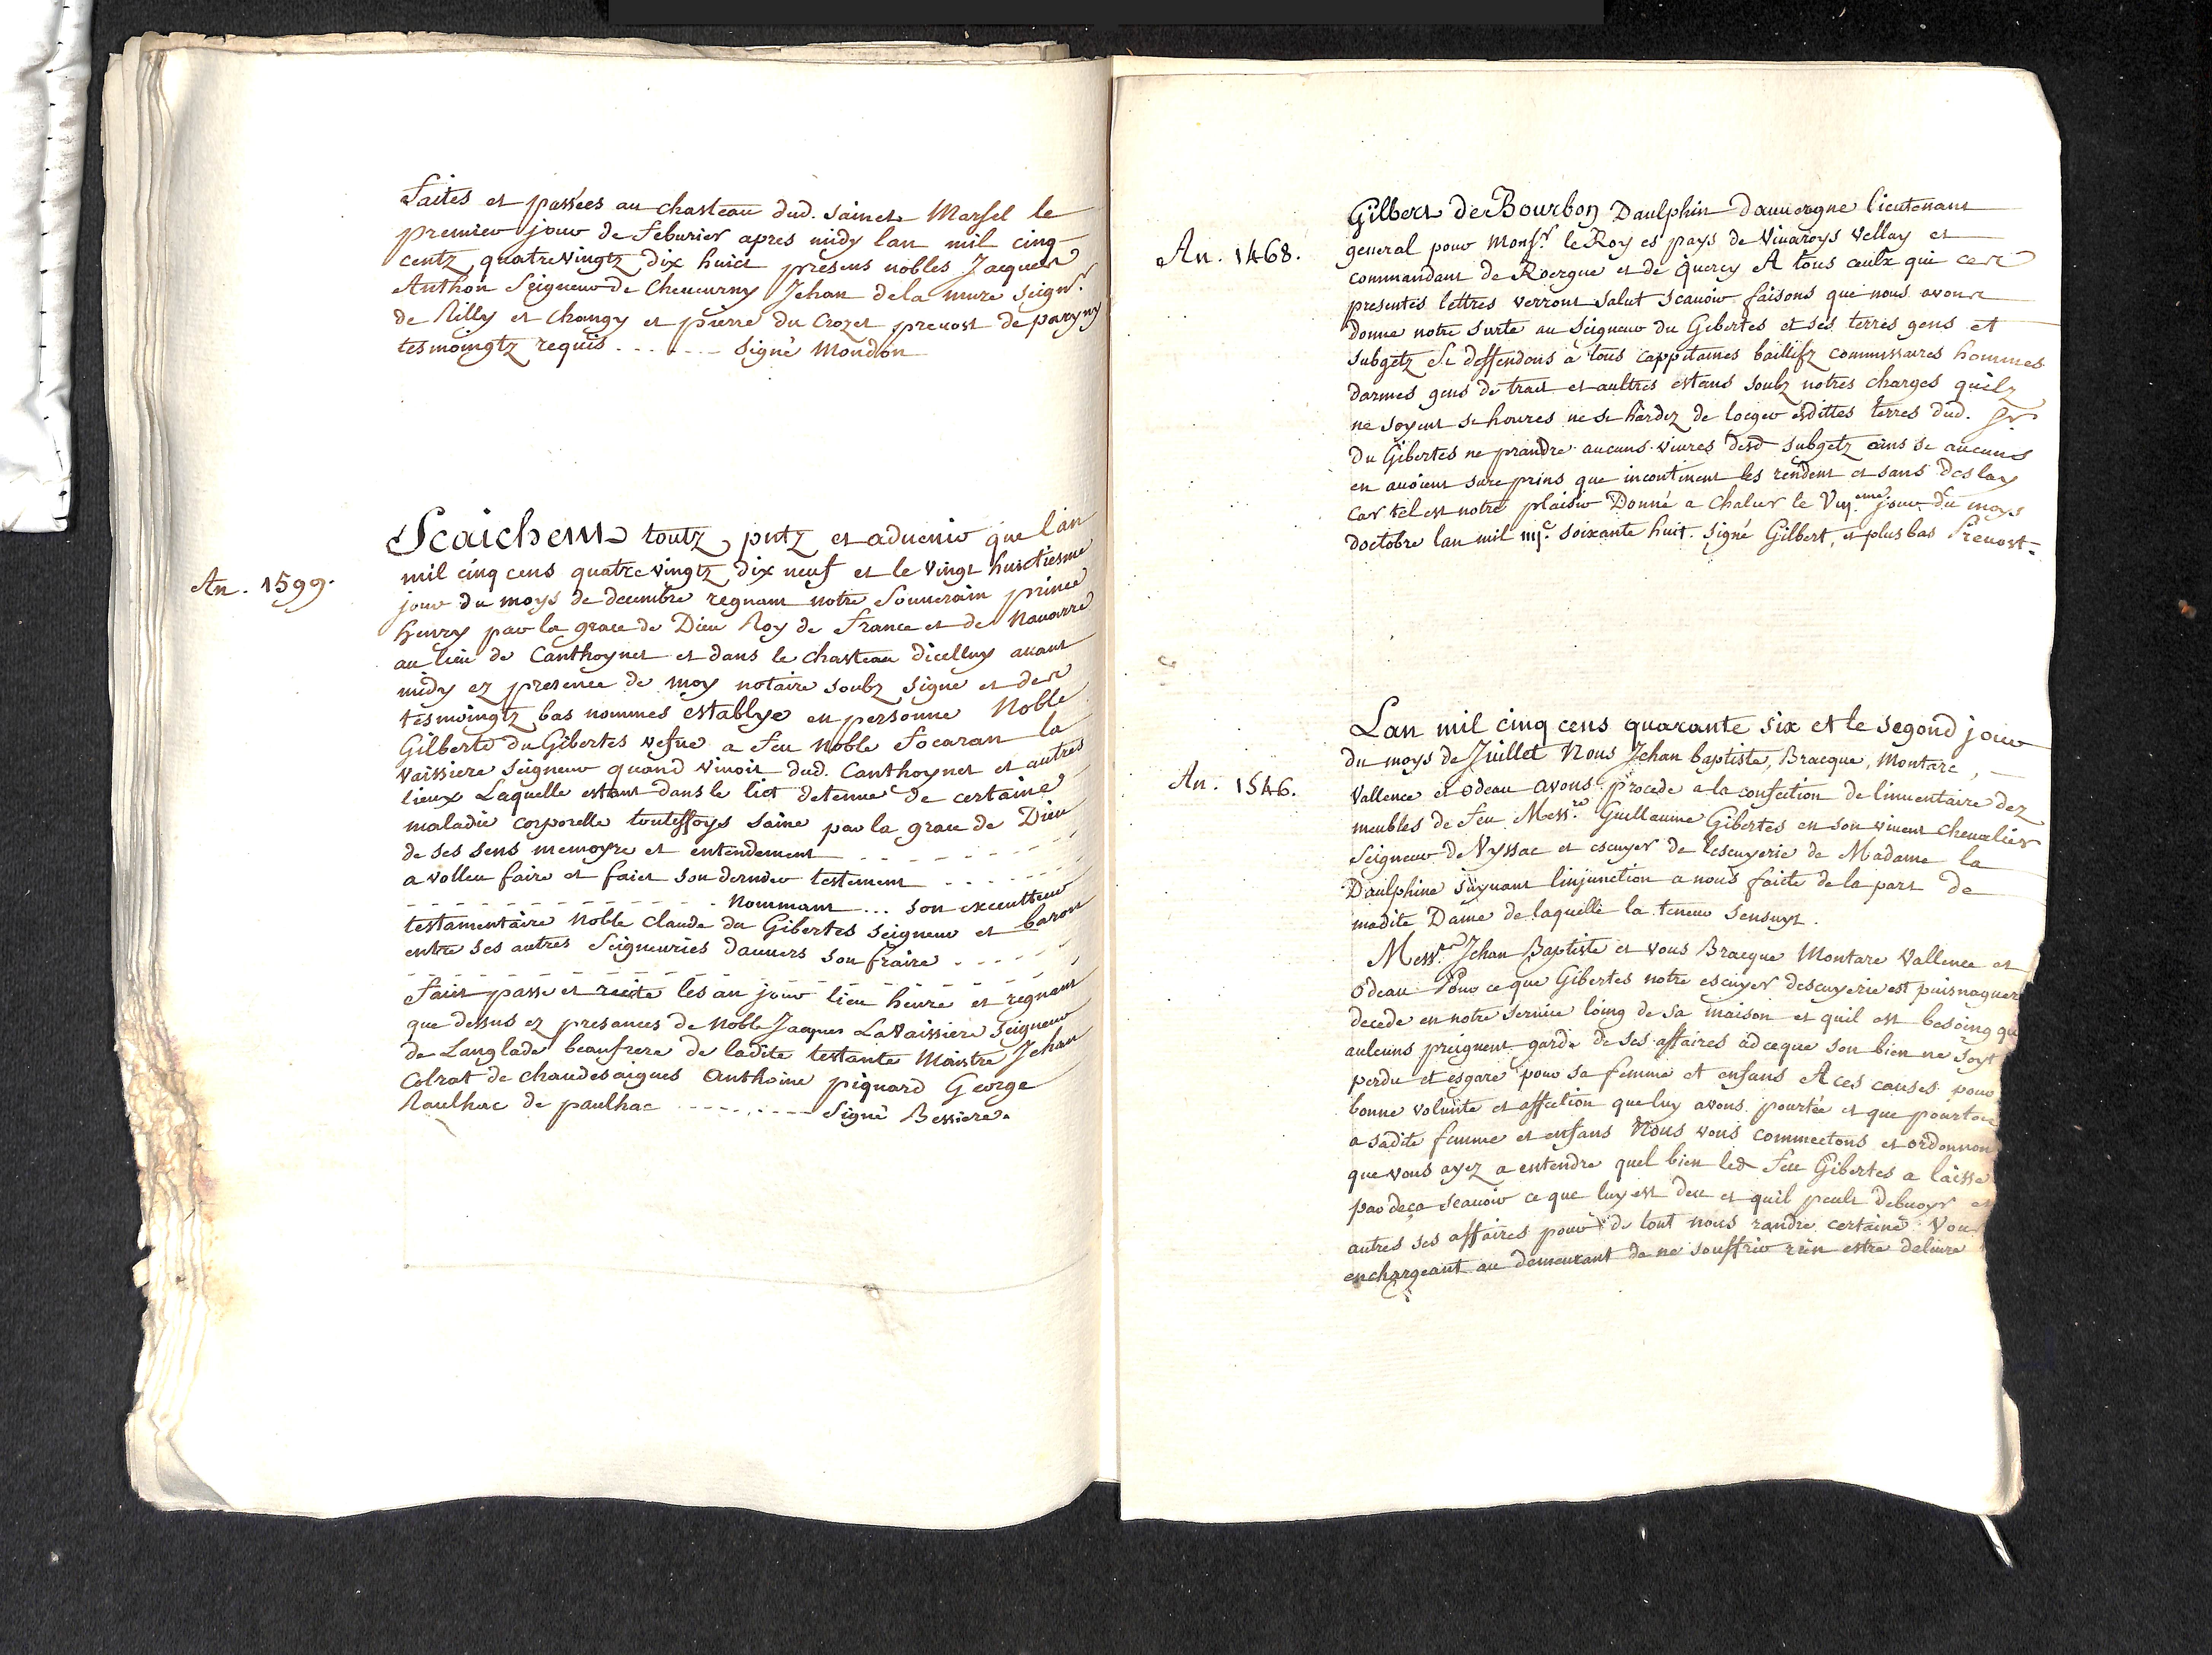 faites et passées au chasteau dud. sainct Marsel le
premier jour de feburier apres midy lan mil cinq
centz quatrevingtz dix huict presens nobles Jacques
Anthon Seigneur de Cheucurny Jehan dela mure Seignr.
de Rilly et Changy et pierre du Crozet prevost de paryny
tesmoingtz requis . . . - - - signé Mondon
An. 1599.
Scaichent toutz pntz et aduenir que l'an
mil cinq cens quatre vingtz dix neuf et le vingt huictiesme
jour du moys de decembre regnant notre Souuerain prince
henry par la grace de Dieu Roy de france et de Nauarre
au lieu de Canthoynet et dans le chasteau dicelluy auant
midy ez presence de moy notaire soubz signe et des
tesmoingtz bas nommes establye en personne Noble
Gilberte du Gibertes vefue a feu noble focaran la
Vaissiere seigneur quand viuoit dud. Canthoynet et autres
lieux Laquelle estant dans le lict detenue de certaine
maladie corporelle touteffoys saine par la grace de Dieu
de ses sens memoyre et entendement - - - - - - -
a volleu faire et faict son dernier testement - - - - - -
- - - - - - - - - - - - - nommant ... son executteur
testamentaire noble Claude du Gibertes seigneur et baron
entre ses autres Seigneuries dauuers son fraire - - - - -
- - - - - - - - - - - - - - - - - - - -
faict passe et recite les an jour lieu heure et regnant
que dessus ez presances de noble Jacques LaVaissiere seigneur
de Langlade beaufrere de ladite testante Maistre Jehan
Colrat de chaudesaigues Anthoine pignard George
Raulhac de paulhac - - - - - - - - signé Bessiere.
An. 1468.
Gilbert de Bourbon Daulphin dauuergne lieutenant
general pour Monsr. le Roy es pays de Viuaroys Vellay et
commandant de Roergue et de Quercy A tous ceulx qui ces
presentes lettres verront salut scauoir faisons que nous avons
donne notre surte au Seigneur du Gebertes et ses terres gens et
subgetz Se deffendons a tous cappitaines baillifz commissaires hommes
darmes gens de trait et aultres estans soubz notres charges quilz
ne soyent se houres ne se hardez de loeger esdittes terres dud. Sr.
du Gibertes ne prandre aucuns viures desd subgetz ains se aucuns
en auoient sur prins que incontinent les rendent et sans deslay
car tel est notre plaisir Donné a Chalier le Vuj.eme jour du moys
doctobre lan mil iiijc. soixante huit. signé Gilbert, et plus bas Preuost.
An. 1546.
Lan mil cinq cens quarante six et le segond jour
du moys de Juillet Nous Jehan baptiste, Bracque, Montarc,
Vallence et Odeau avons procede a la confection de linuentaire dez
meubles de feu Messre. Guillaume Gibertes en son viuent cheualier
Seigneur de Vyssac et escuyer de lescuyerie de Madame la
Daulphine suyuant linjunction a nous faicte de la part de
madite Dame de laquelle la teneur sensuyt.
Messrs. Jehan Baptiste et vous Bracque Montarc Vallence et
Odeau Pour ce que Gibertes notre escuyer descuyerie est puisnaguer
decede en notre seruice loing de sa maison et quil est besoing qu
aulcuns preignent garde de ses affaires ad ce que son bien ne soyt
perdu et esgare pour sa femme et enfans A ces causes pour
bonne volunte et affection que luy avons pourtée et que pourton
a sadite femme et enfans Nous vous commectons et ordonnon
que vous ayez a entendre quel bien led feu Gibertes a laisse
par deça scauoir ce que luy est deu et quil peult debuoyr et
autres ses affaires pour de tout nous randre certaine Vou
enchargeant au demeurant de ne souffrir rien estre deliure